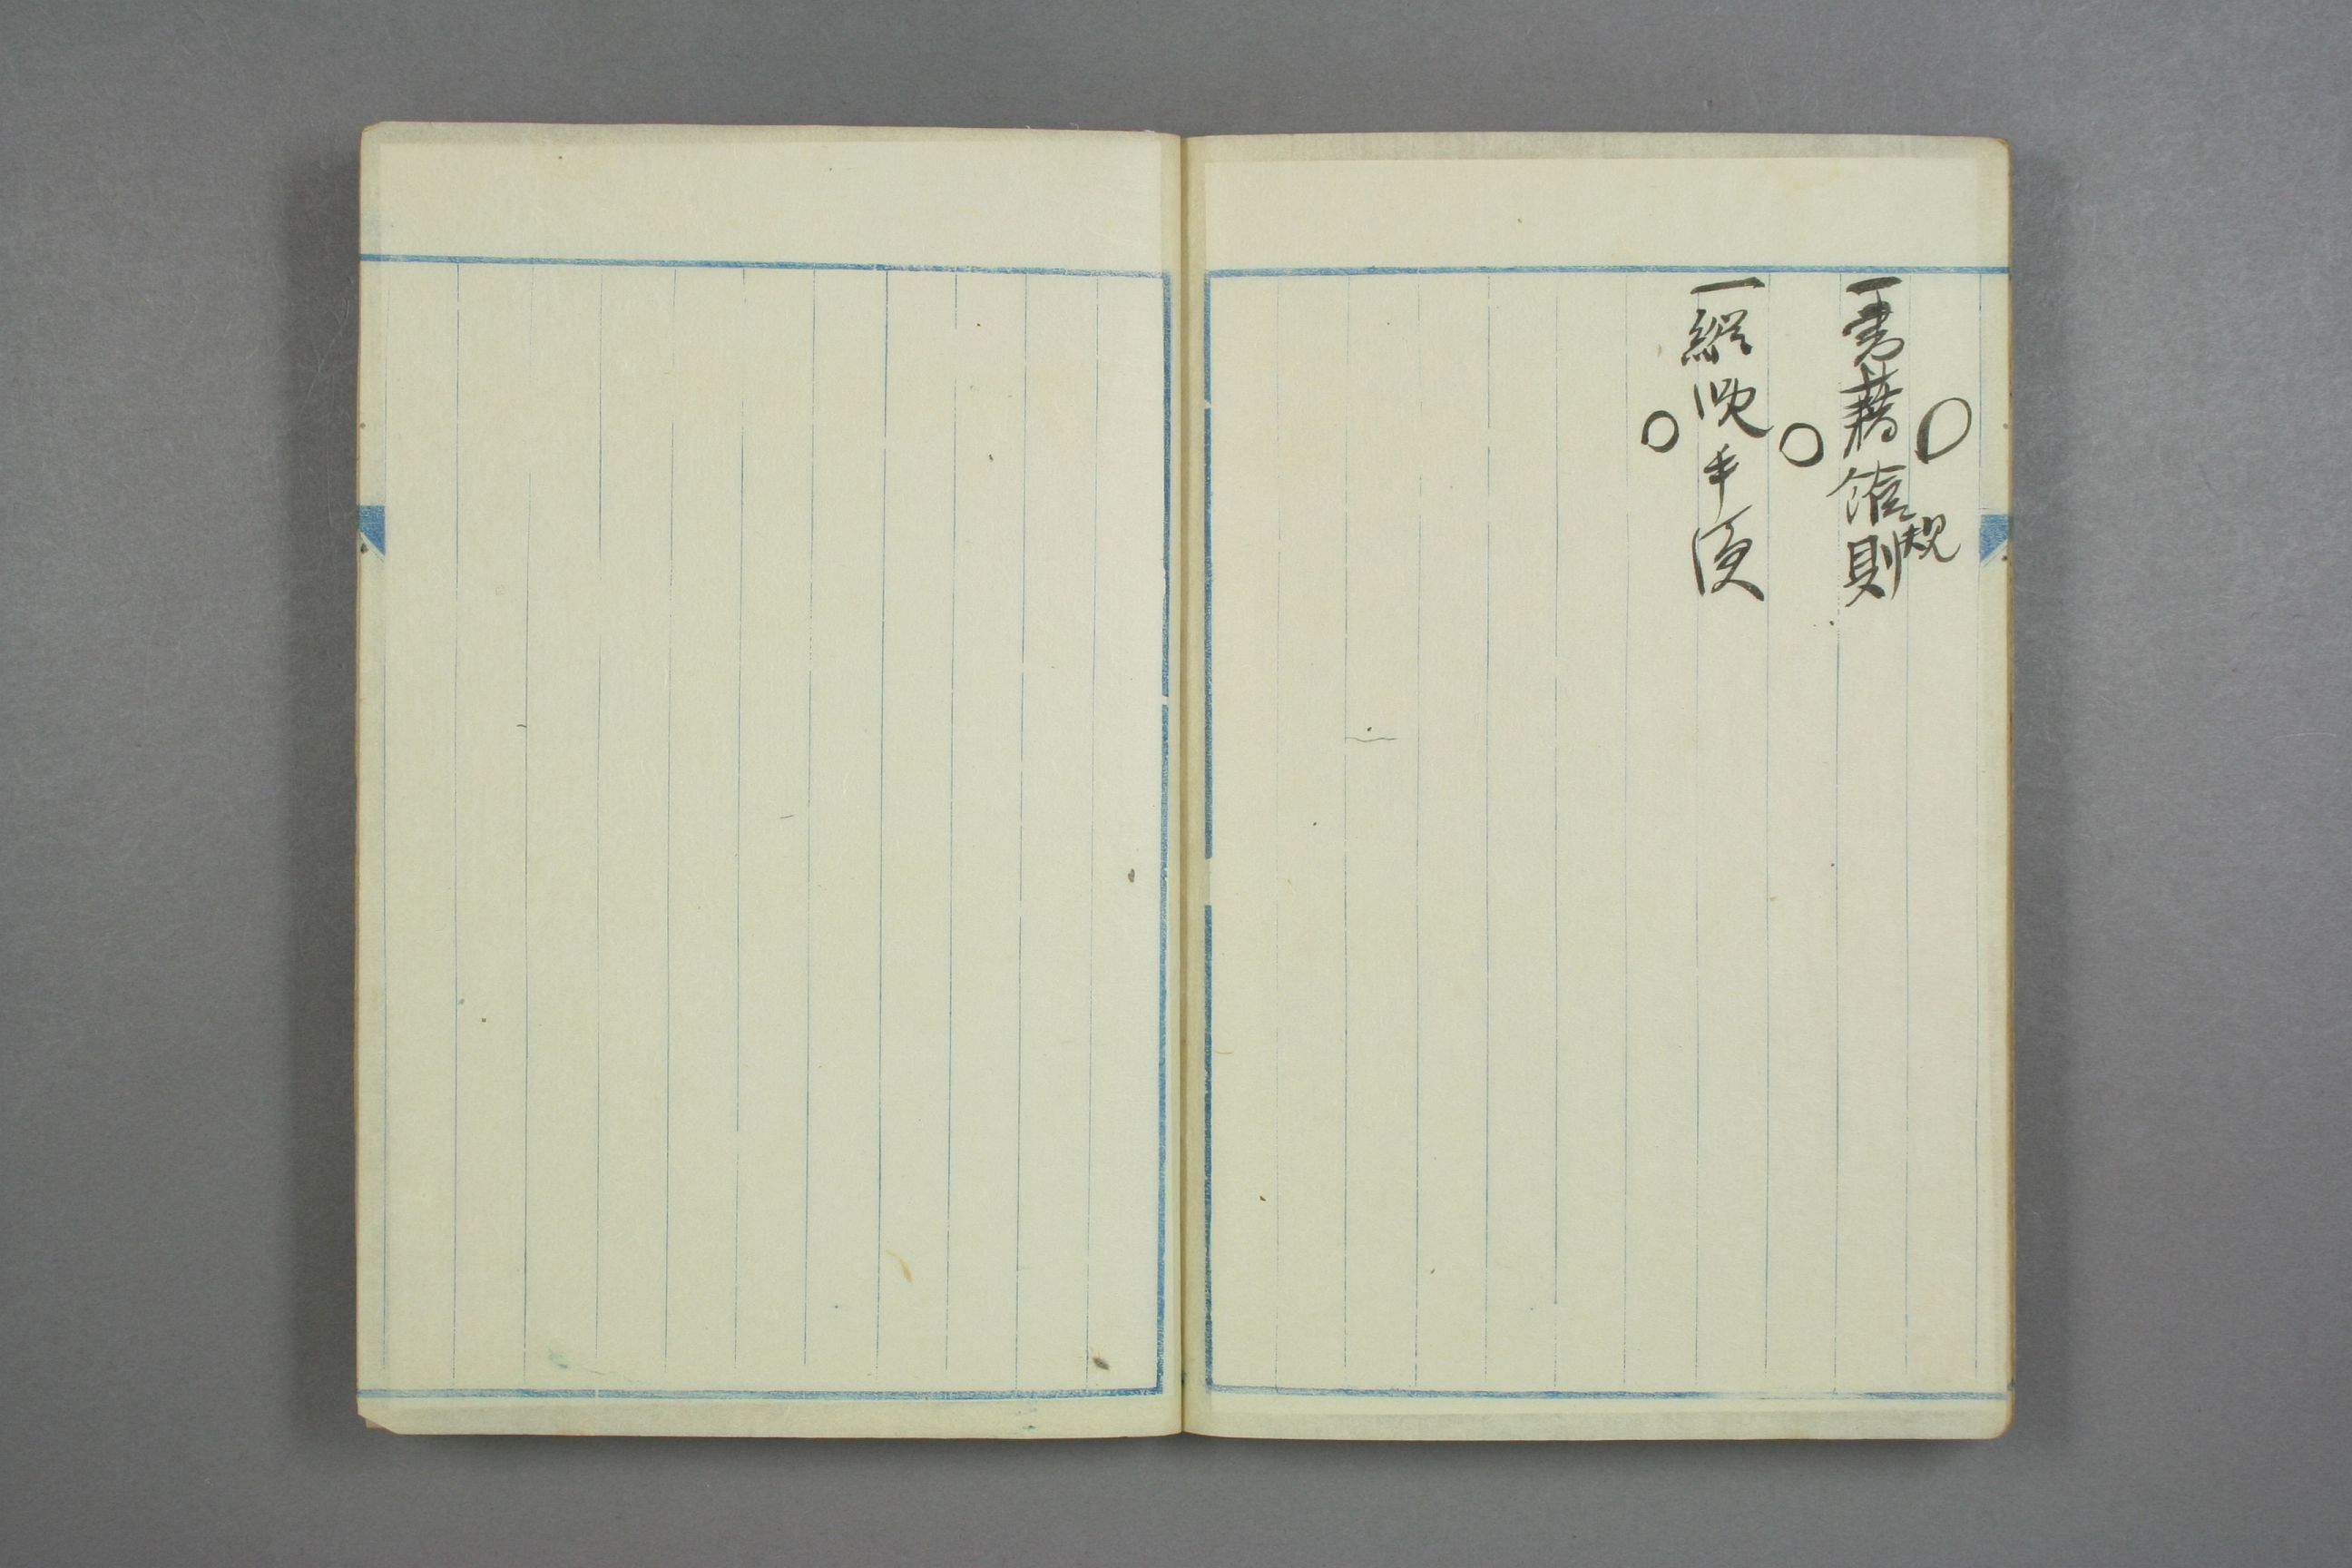 ○
一書籍館規則
○
一縦覧手順
○